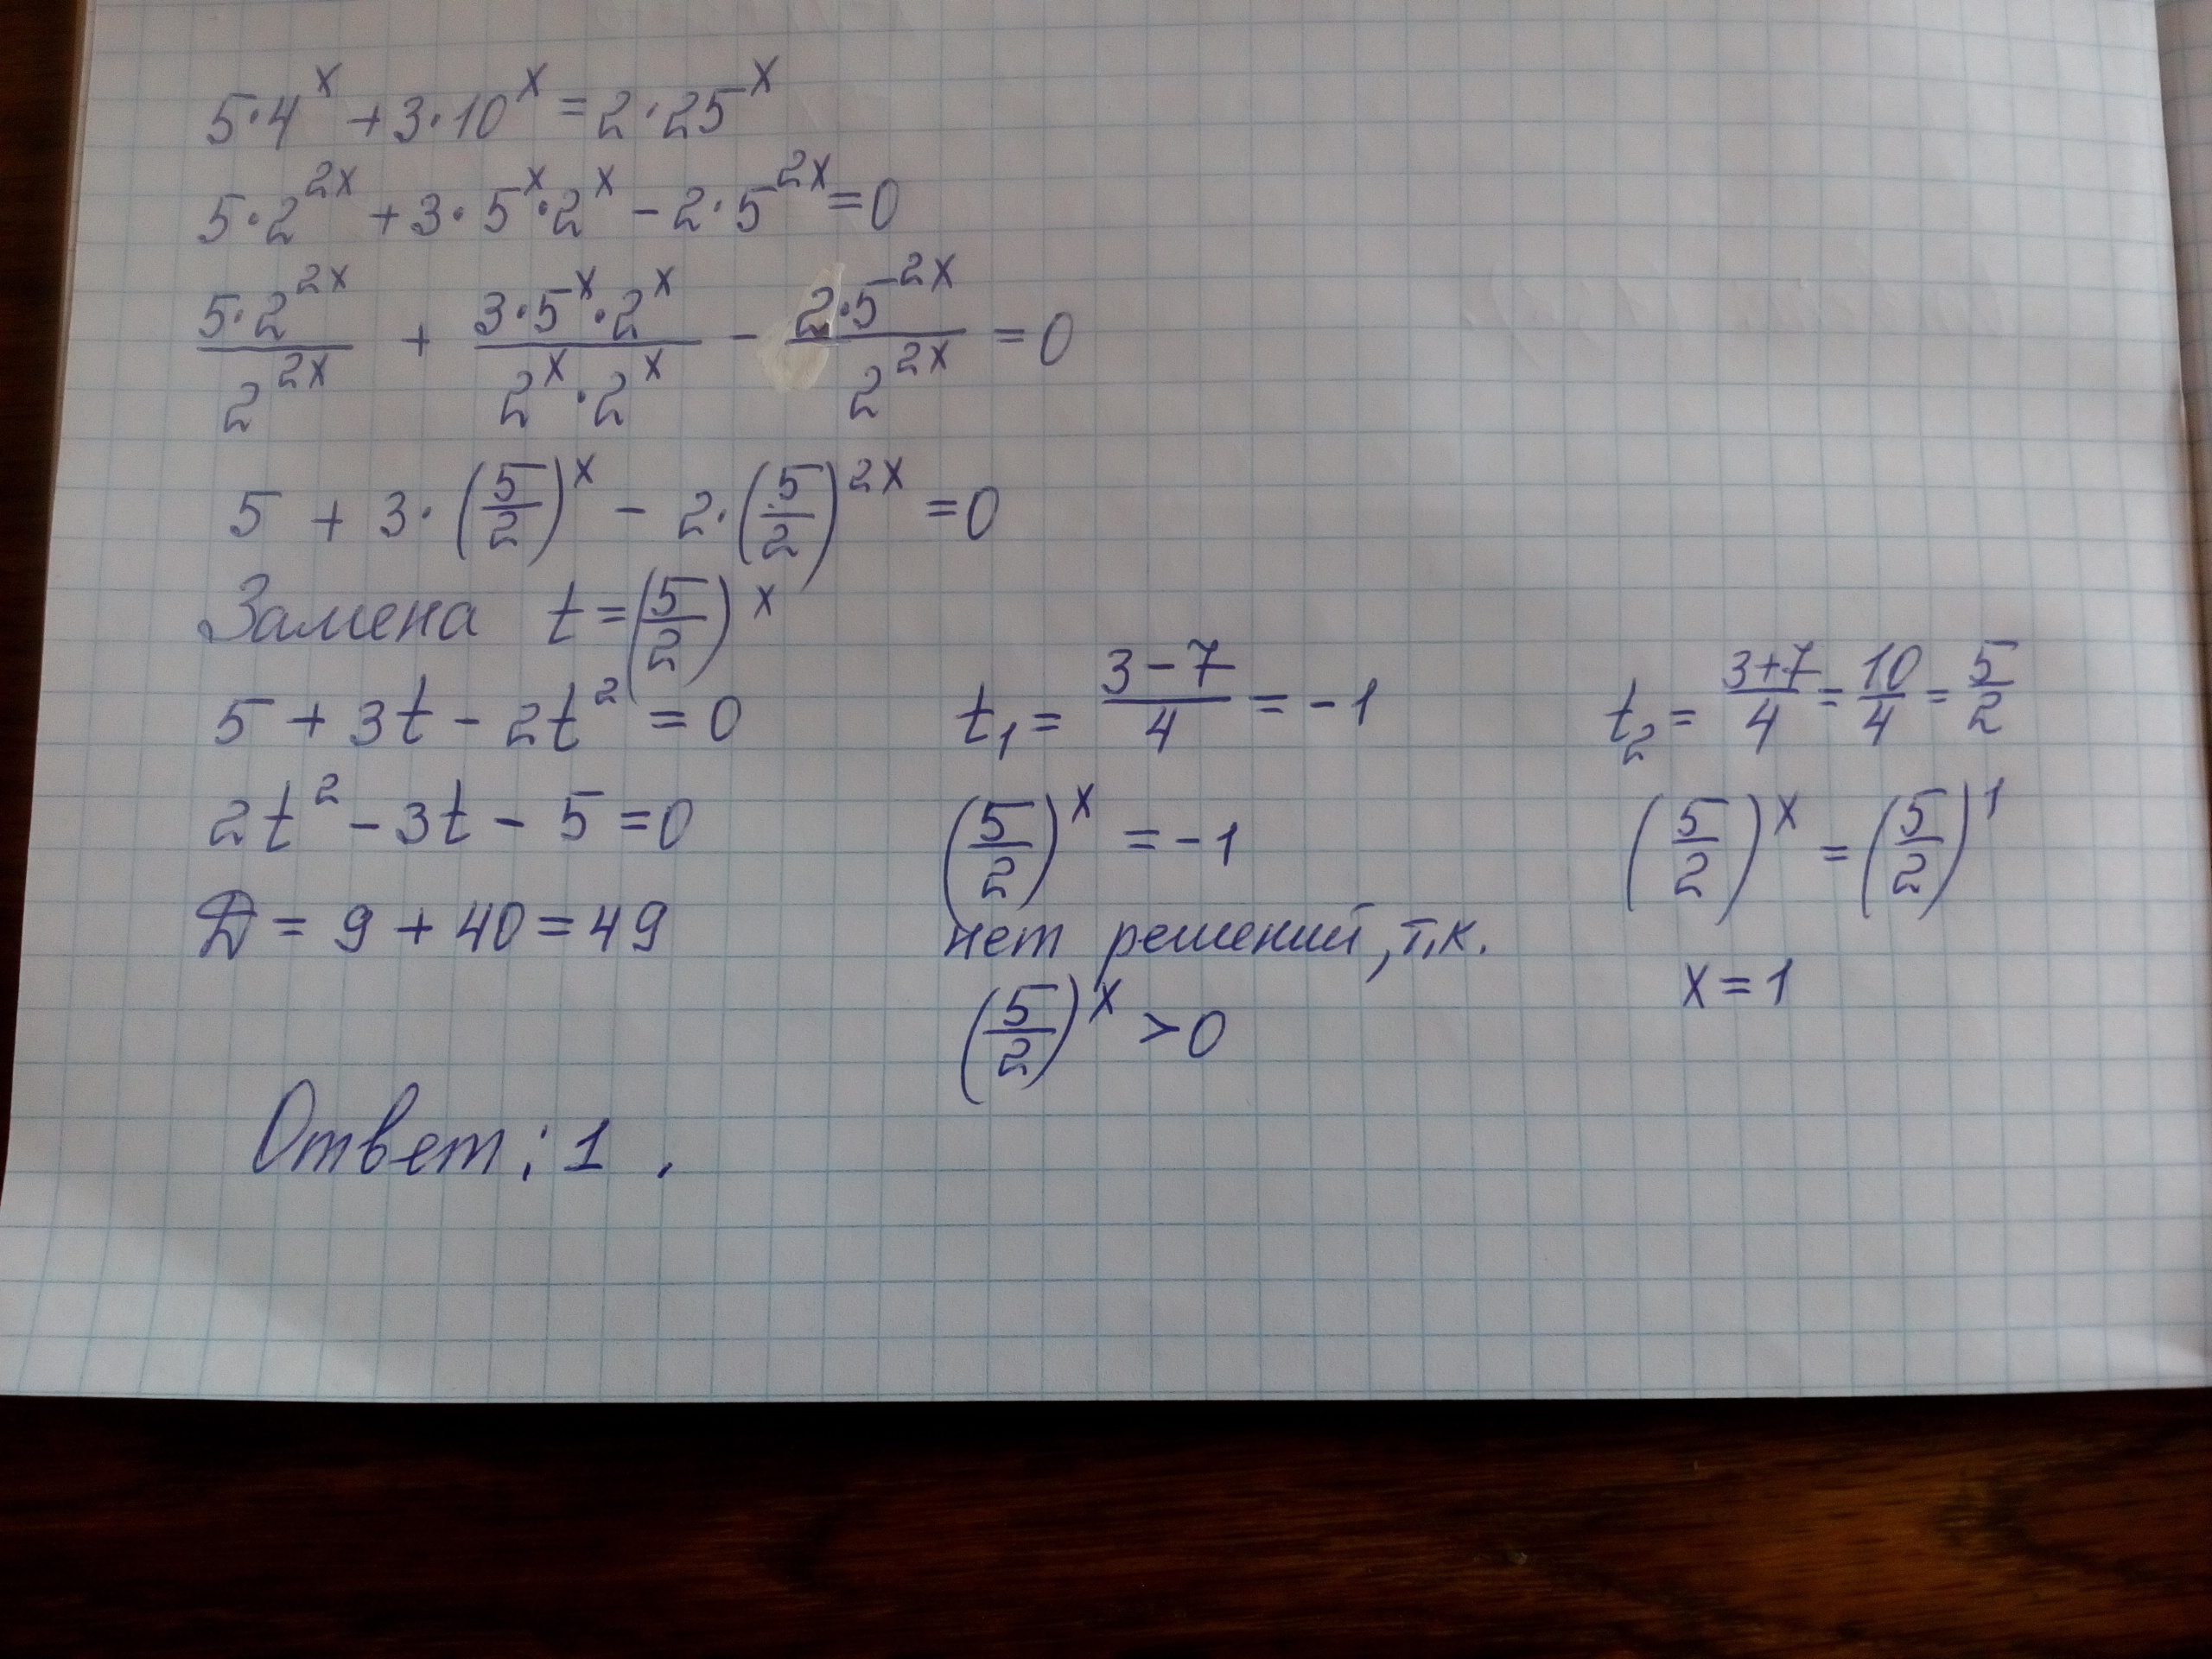 5·4^x + 3·10^x = 2·25^x
5·2^{2x} + 3·5^x·2^x − 2·5^{2x} = 0
\frac{5·2^{2x}}{2^{2x}} + \frac{3·5^x·2^x}{2^x·2^x} − \frac{2·5^{2x}}{2^{2x}} = 0
5 + 3·(\frac{5}{2})^x − 2·(\frac{5}{2})^{2x} = 0
Замена t = (\frac{5}{2})^x
5 + 3t − 2t^2 = 0
2t^2 − 3t − 5 = 0
D = 9 + 40 = 49
t_1 = \frac{3−7}{4} = −1
(\frac{5}{2})^x = −1
нет решений, т.к.
(\frac{5}{2})^x > 0
t_2 = \frac{3+7}{4} = \frac{10}{4} = \frac{5}{2}
(\frac{5}{2})^x = (\frac{5}{2})^1
x = 1
Ответ: 1.